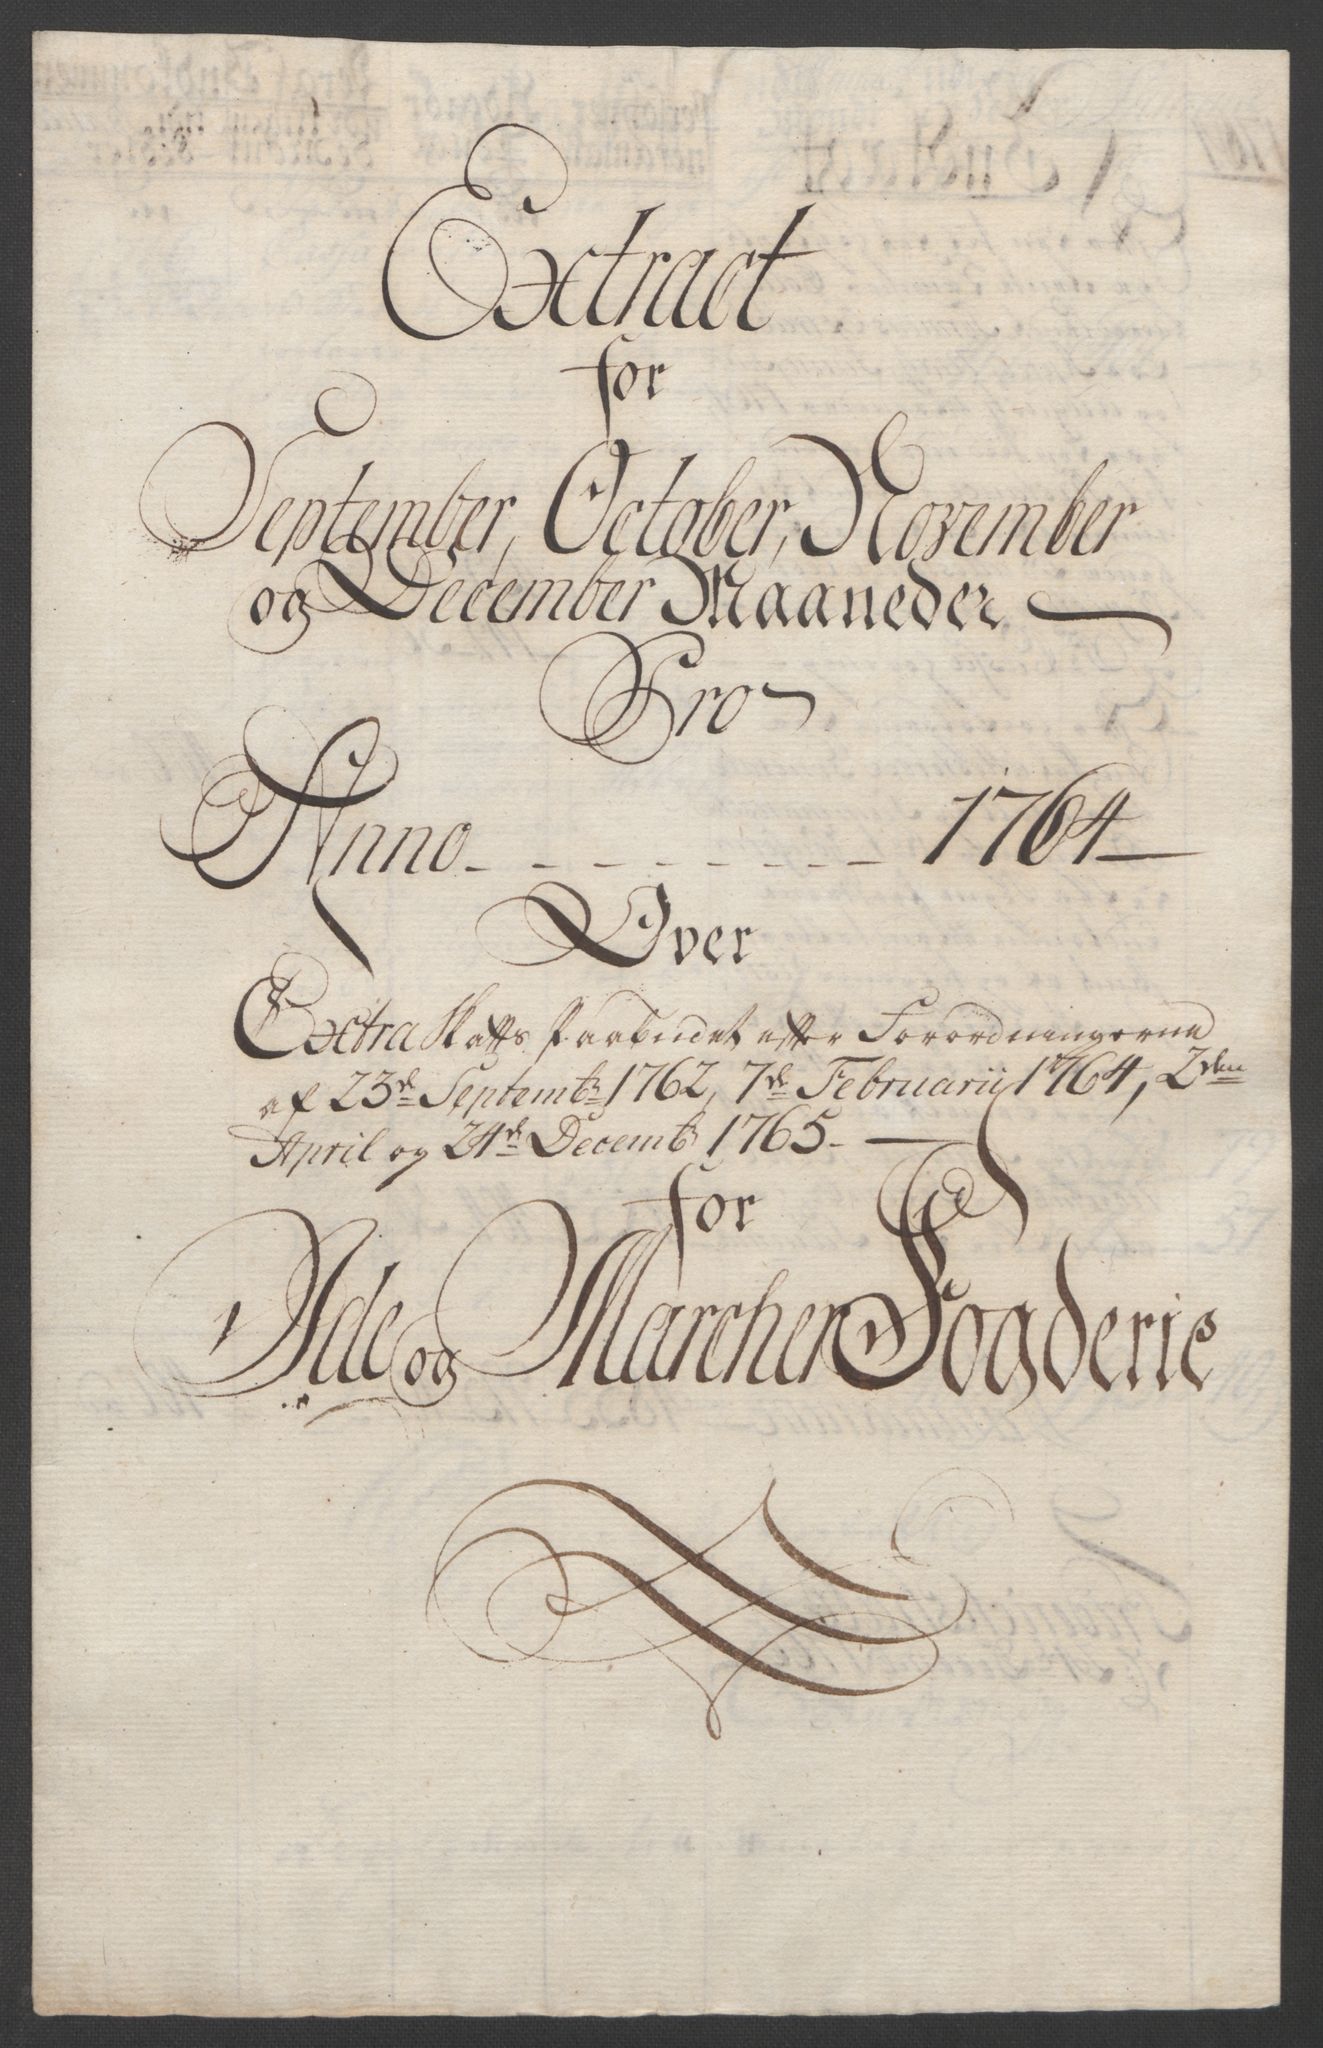 Extract
for
September, October, November
og December Maaneder
Pro
Anno - - - - - - - - - 1764
Over
Extra Skatts Paabudet efter Forordningerne
af 23de Septembr 1762, 7de Februarii 1764, 2den
April og 24de Decembr 1765.
for
Ide og Marcher Fogderie